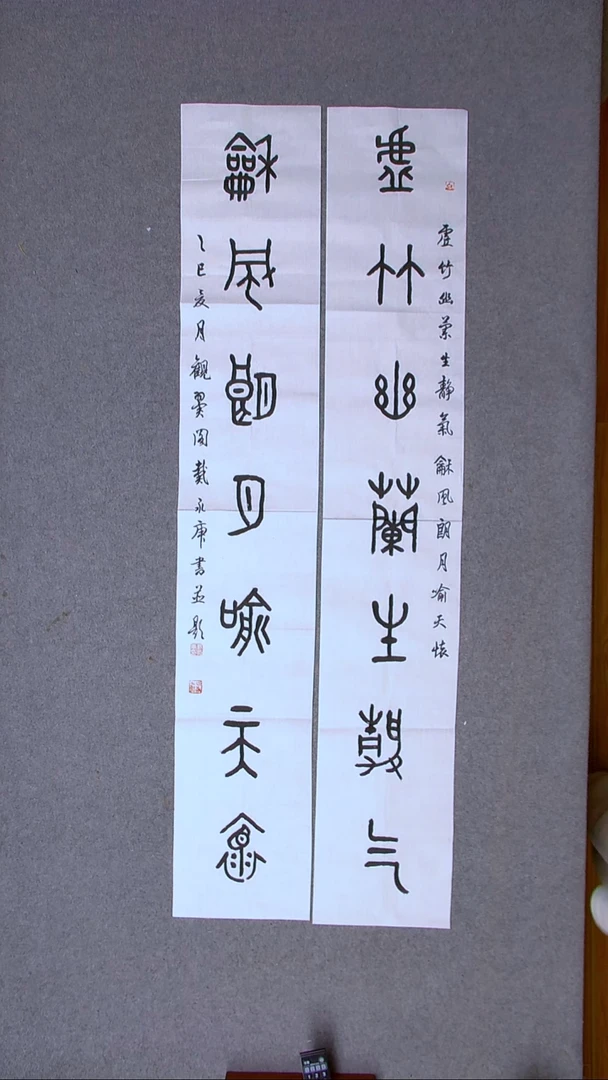 虛竹幽蘭生靜氣 龢風朗月喻天懷
虛竹幽蘭生靜气
龢風朗月喻天懷
乙巳夏月觀 閣戴永庚書並題